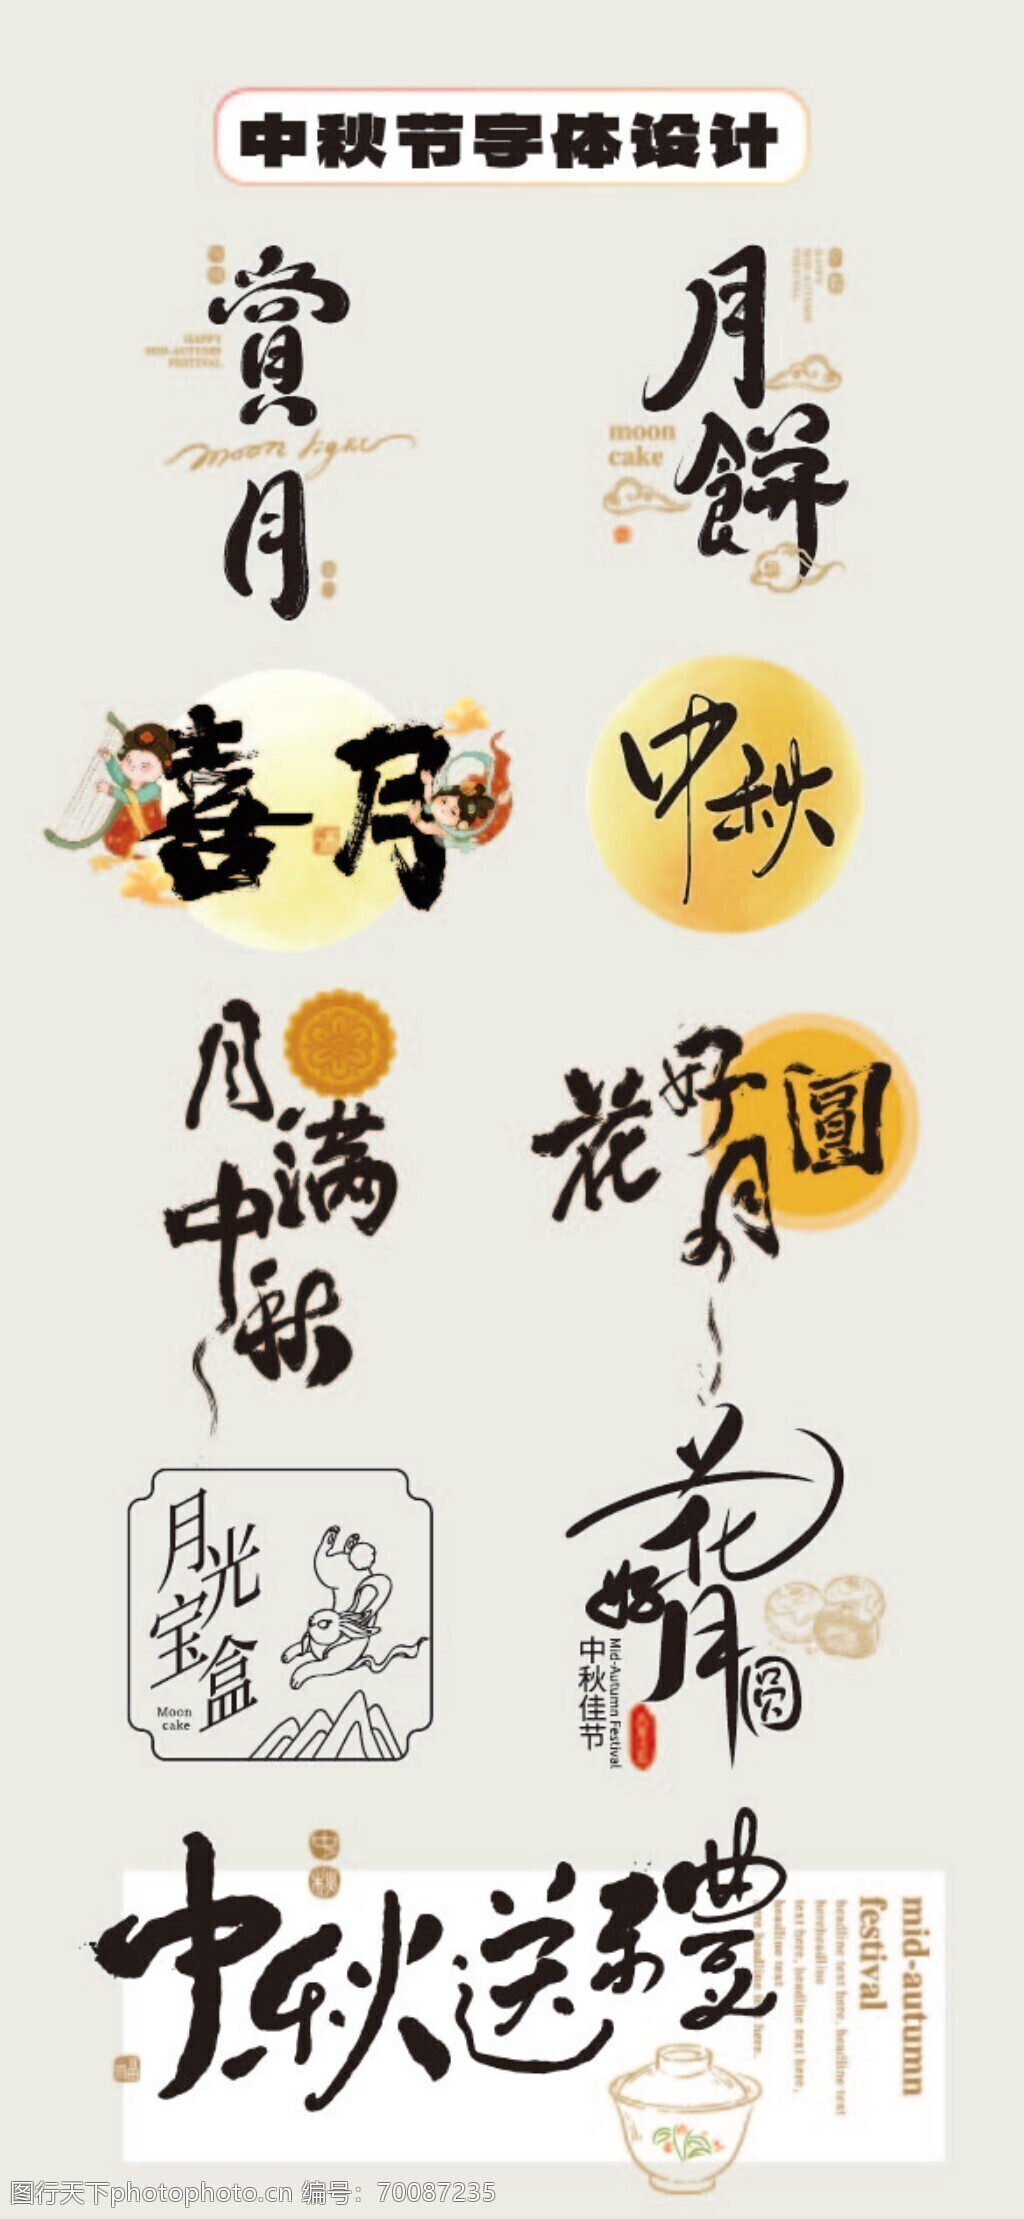 中秋节字体设计
賞月
HAPPY
MID-AUTUMN
FESTIVAL
moon light
月餅
HAPPY
MID-AUTUMN
FESTIVAL
moon
cake
喜月
中秋
月满中秋
花好月圆
月光宝盒
Moon
cake
花好月圆
中秋佳节
Mid-Autumn Festival
中秋送禮
中秋
mid-autumn
festival
headline text here, headline text
hereheadline
text here, headline text here,
headline text
here headline text here.
图行天下photophoto.cn 编号：70087235